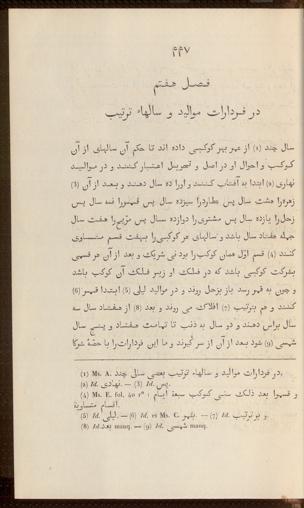 ۴۴۷
فصل هفتم
در فردارات مواليد و سالهاء ترتيب
سال چند (1) از مهر بهر كوكبى داده اند تا حكم آن سالهاى از آن
كوكب و احوال او در اصل و تحويل اعتبار كنند و در مواليد
نهارى (2) ابتدا به آفتاب كنند و اورا ده سال دهند و بعد از آن (3)
زهره را هشت سال پس عطاردرا سيزده سال پس قمررا نه سال پس
زحل را يازده سال پس مشترى را دوازده سال پس مريخ را هفت سال
جمله هفتاد سال باشد و سالهاى هر كوكبى را بهفت قسم متساوى
كنند (4) قسم اوّل همان كوكب را بود بى شريك و بعد از آن هر قسمى
بشركت كوكبى باشد كه در فلك او زير فلك آن كوكب باشد
و چون به قمر رسد باز بزحل روند و در مواليد ليلى (5) ابتدا قمر (6)
كنند و هم بترتيب (7) افلاك مى روند و بعد (8) از هفتاد سال سه
سال براس دهند و دو سال به ذنب تا تمامت هفتاد و پنج سال
شمسى (9) شود بعد از آن از سر گيرند و ما اين فردارات را با حصّهٔ شركا
(1) Ms. A. در فردارات مواليد و سالهاء ترتيب بعضى سالى چند.
(2) Id. نهادى. — (3) Id. پس.
(4) Ms. E. fol. 40 r° : و قسموا بعد ذلك سنى كوكب سبعة أيام
أقسام متساوية.
(5) Id. ليلى. — (6) Id. et Ms. C. بقمر. — (7) Id. و بر ترتيب.
(8) Id. بعد manq. — (9) Id. شمسى manq.